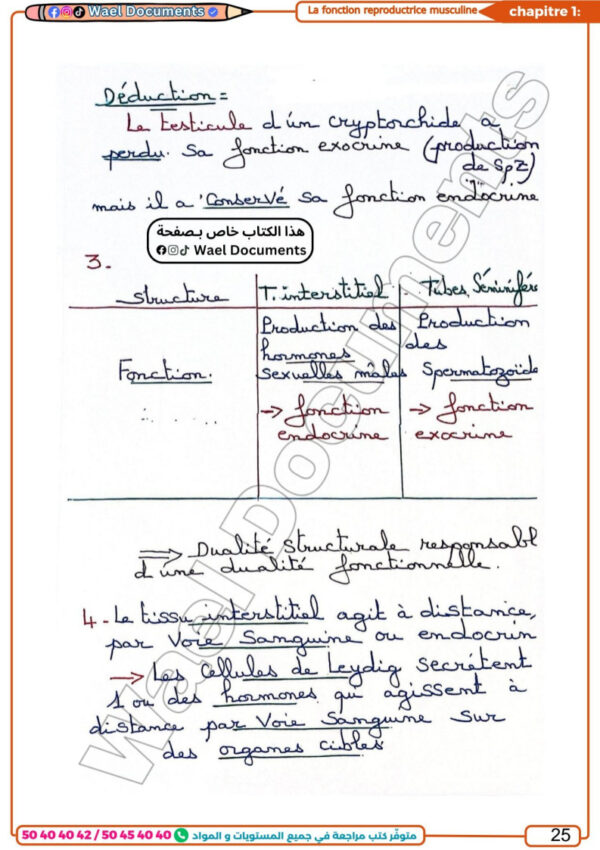 Wael Documents
La fonction reproductrice musculine
chapitre 1:
Déduction =
Le testicule d'un cryptorchide a
perdu sa fonction exocrine (production
de SpZ)
mais il a conservé sa fonction endocrine
هذا الكتاب خاص بصفحة
Wael Documents
3.
Structure
T. interstitiel
Tubes Séminifère
Fonction
Production des
hormones
sexuelles mâles
→ fonction
endocrine
Production
des
Spermatozoïde
→ fonction
exocrine
⇒ Dualité structurale responsabl
d'une dualité fonctionnelle.
4 - Le tissu interstitiel agit à distance,
par Voie Sanguine ou endocrin
→ Les Cellules de Leydig Secrétent
1 ou des hormones qui agissent à
distance par Voie Sanguine sur
des organes cibles
Wael Documents
50 40 40 42 / 50 45 40 40
متوفّر كتب مراجعة في جميع المستويات و المواد
25